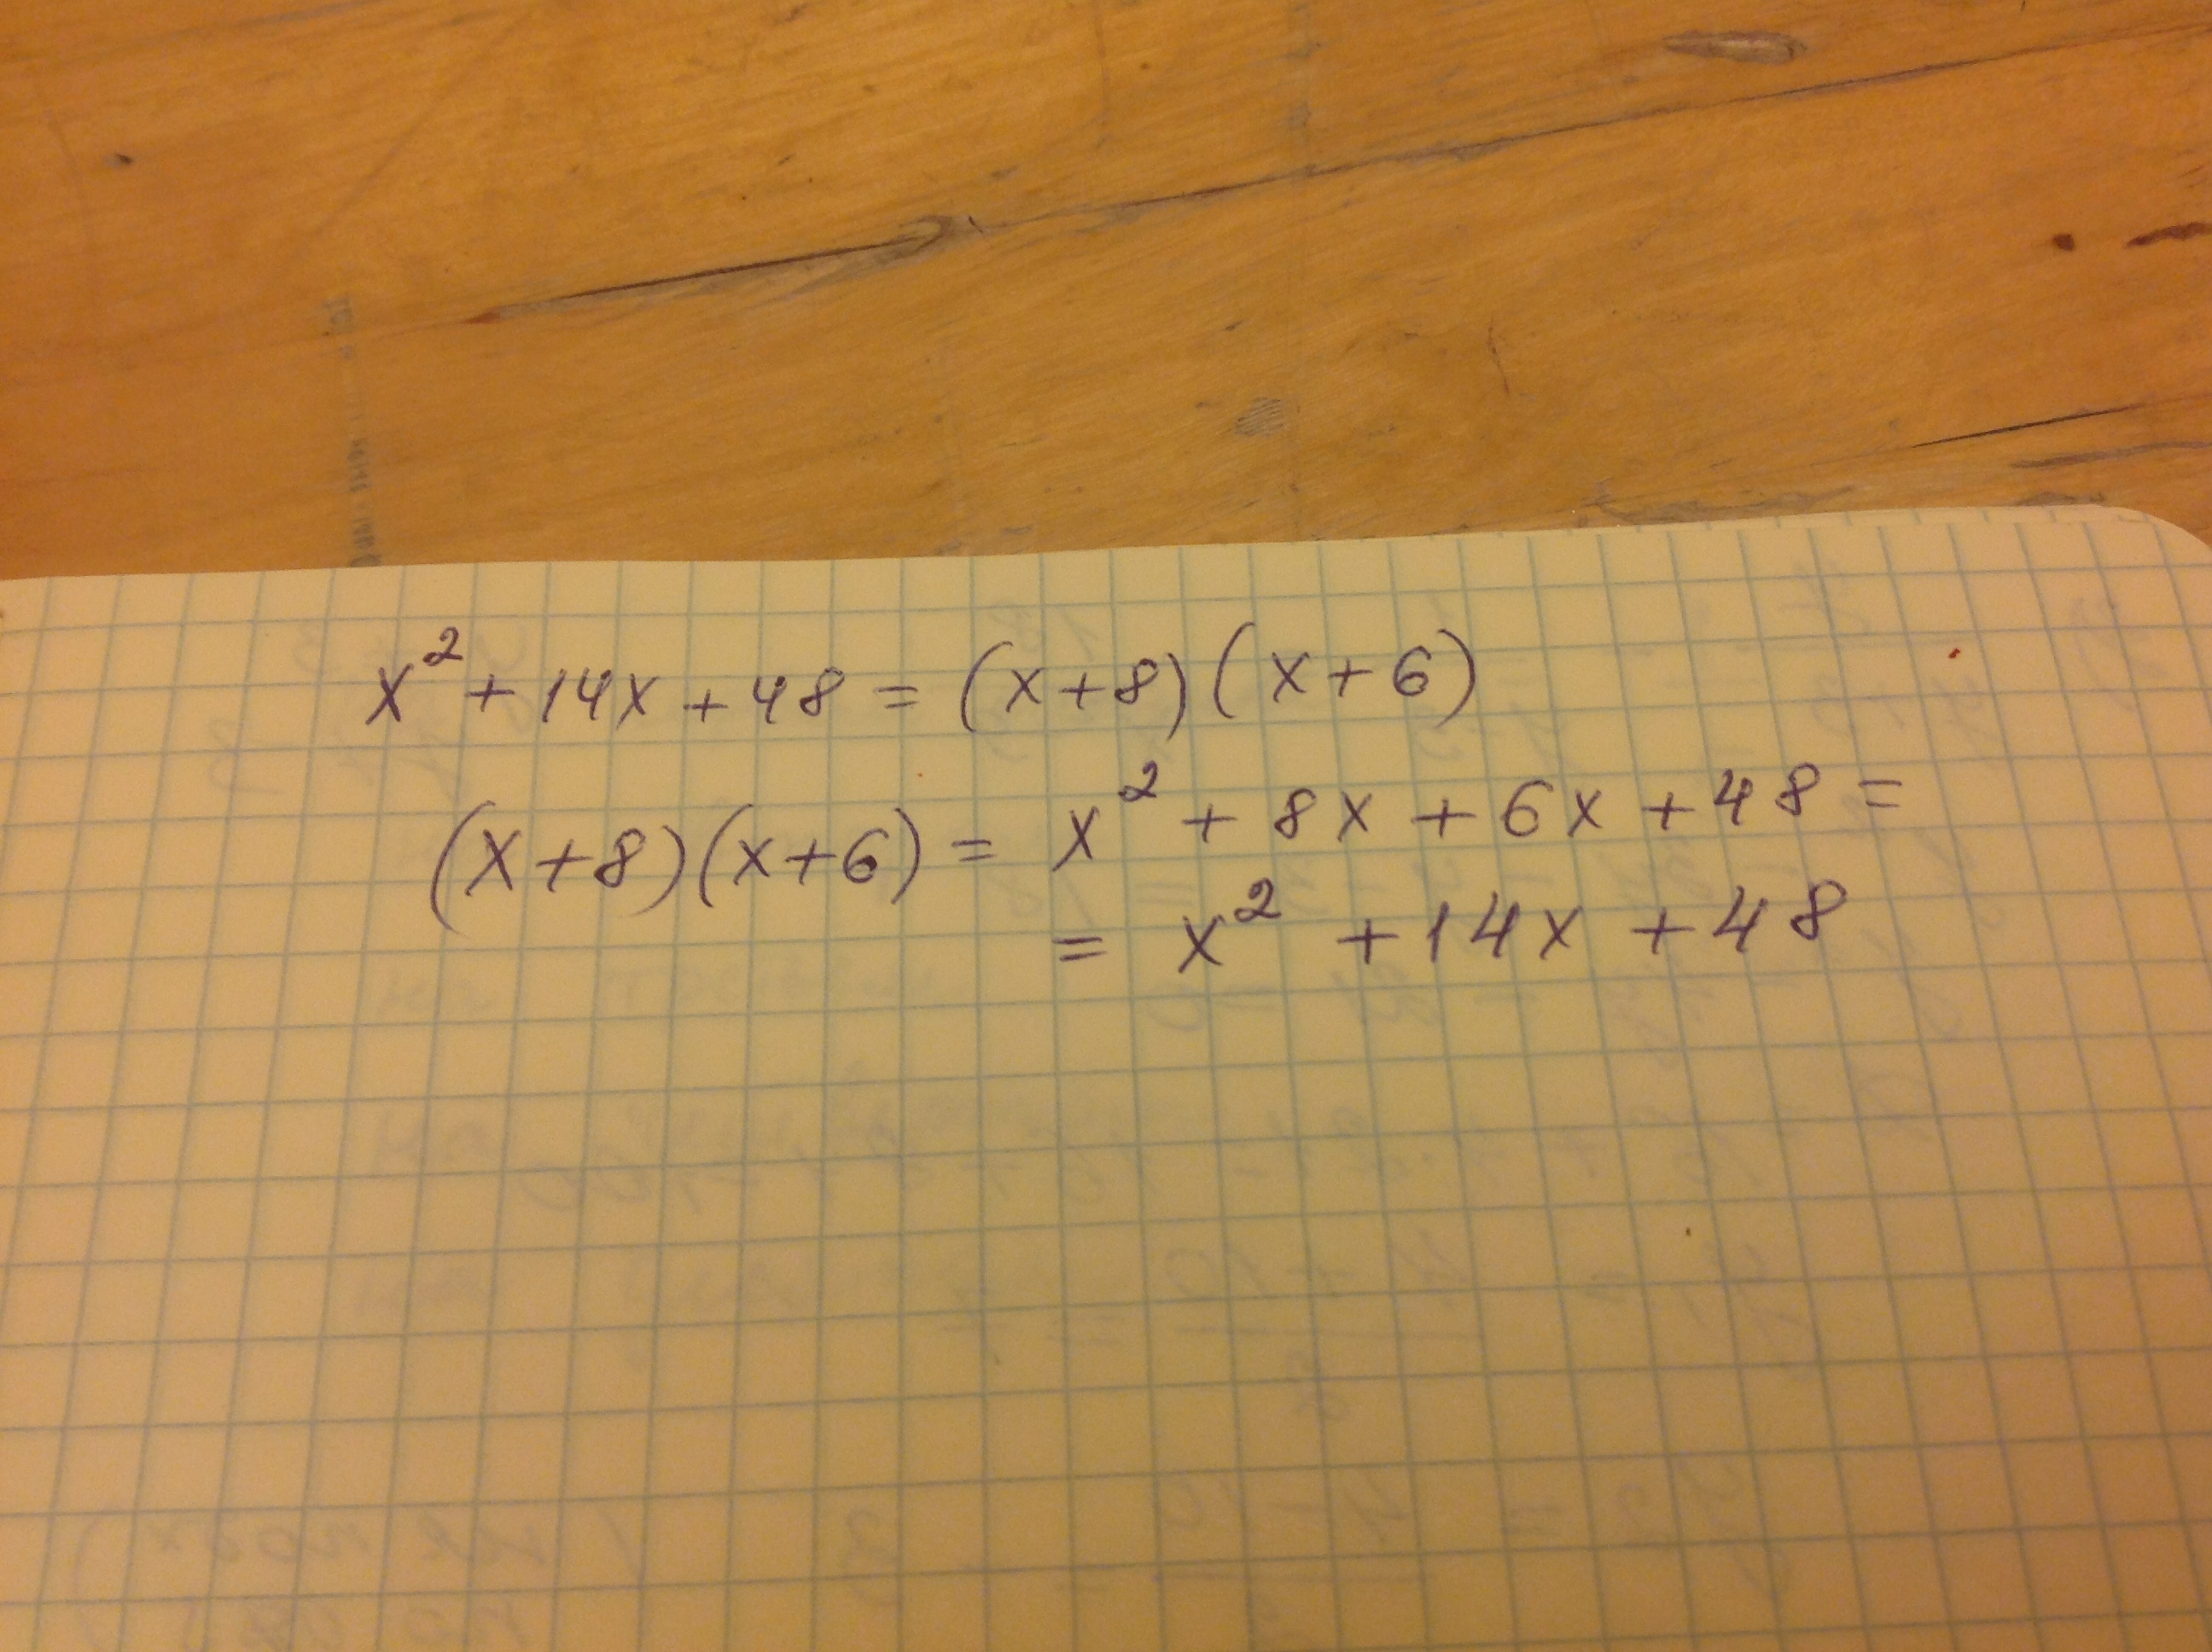 x² + 14x + 48 = (x+8)(x+6)
(x+8)(x+6) = x² + 8x + 6x + 48 =
= x² + 14x + 48